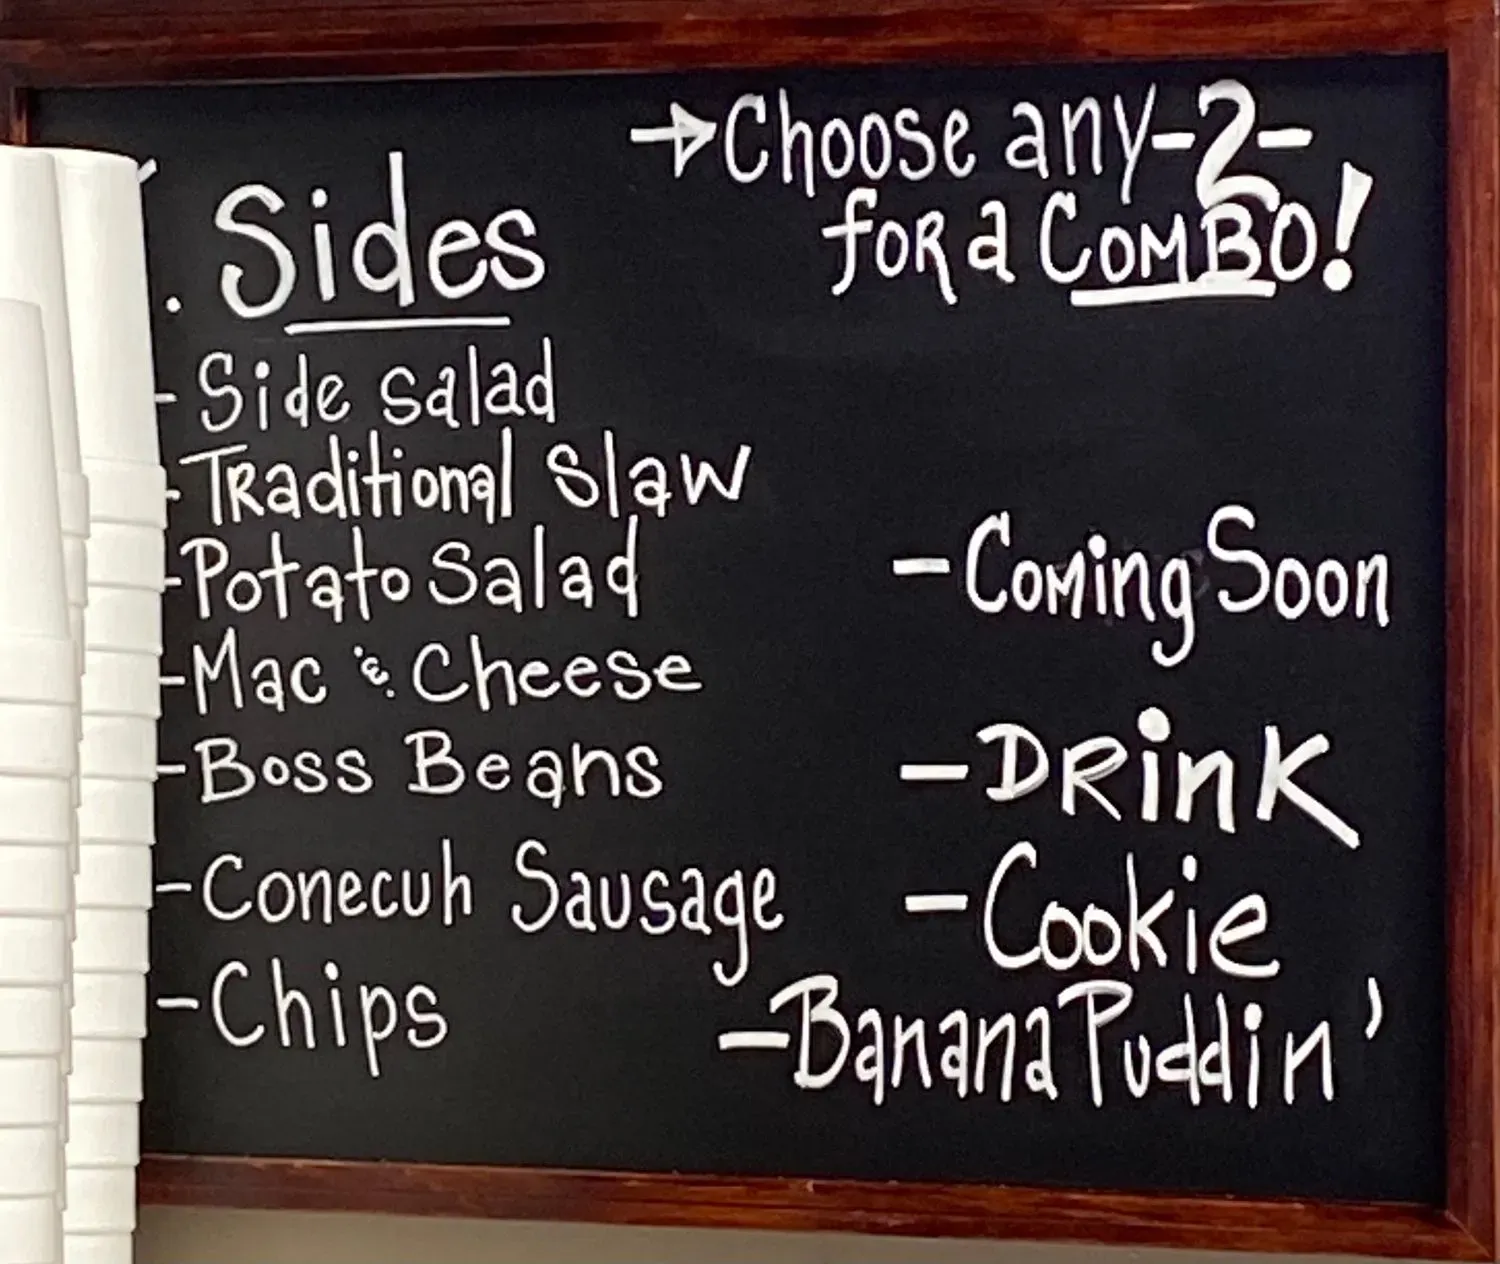 →Choose any -2-
for a COMBO!
Sides
- Side salad
- Traditional Slaw
- Potato Salad
- Mac & Cheese
- Boss Beans
- Conecuh Sausage
- Chips
- Coming Soon
- Drink
- Cookie
- Banana Puddin'